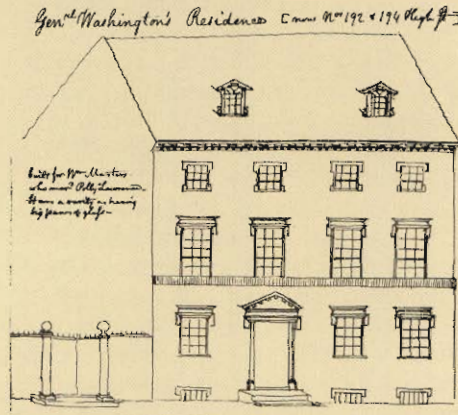 Genrl Washington's Residence [now Nos 192 & 194 High St]
built for Wm Masters
who mard Polly Lawrence
It was a rarity as having
big panes of glass